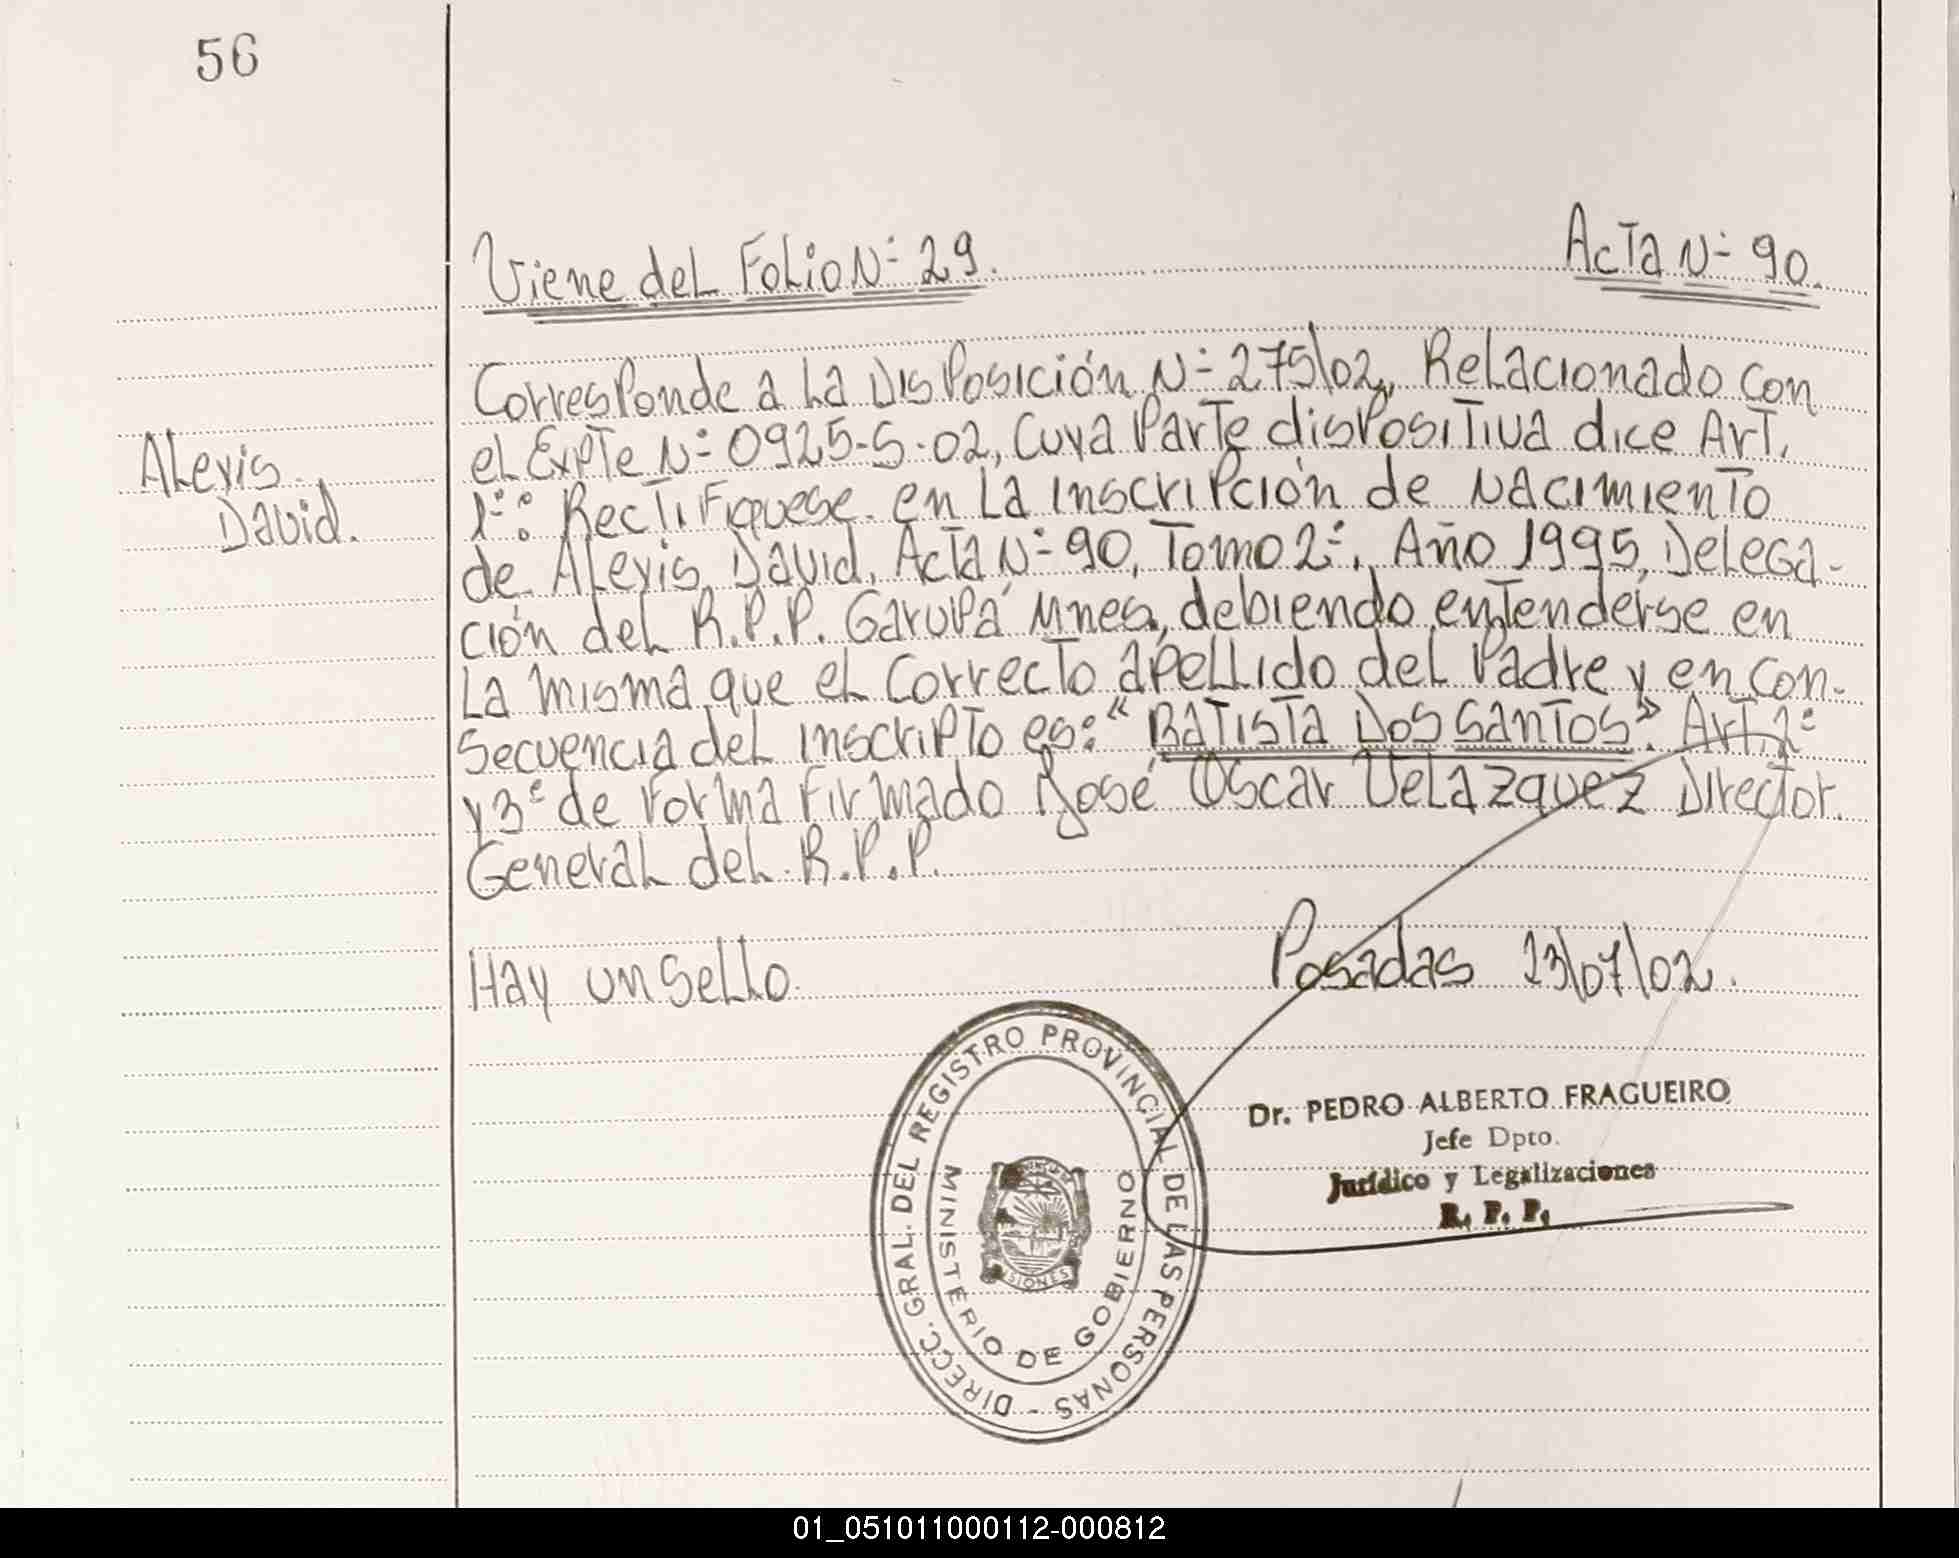 56
Viene del Folio Nº 29. Acta Nº 90.
Corresponde a La Disposición Nº 275/02, Relacionado con
el Expte Nº 0925-S-02, Cuya Parte dispositiva dice Art.
Alexis
1º: Rectifiquese en La inscripción de Nacimiento
David.
de Alexis David, Acta Nº 90, Tomo 2º, Año 1995, Delega-
ción del R.P.P. Garupá Mnes, debiendo entenderse en
La misma que el Correcto apellido del Padre y en con-
secuencia del inscripto es: "BATISTA DOS SANTOS". Art. 2º
y 3º de Forma Firmado José Oscar Velazquez Director
General del R.P.P.
Hay un Sello. Posadas 23/07/02.
DIRECC. GRAL. DEL REGISTRO PROVINCIAL DE LAS PERSONAS -
MINISTERIO DE GOBIERNO
MISIONES
Dr. PEDRO ALBERTO FRAGUEIRO
Jefe Dpto.
Jurídico y Legalizaciones
R. P. P.
01_051011000112-000812